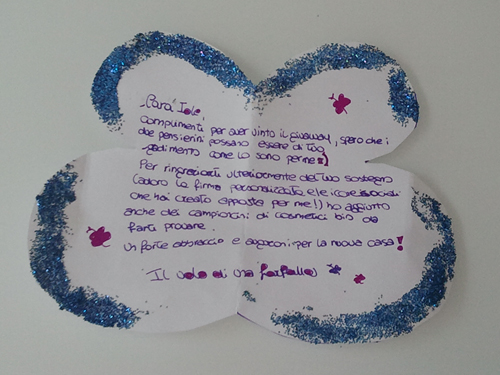 Cara Iole,
complimenti per aver vinto il giveaway, spero che i
due pensierini possano essere di tuo
gradimento come lo sono per me :)
Per ringraziarti ulteriormente del tuo sostegno
(adoro la firma personalizzata e le icone social
che hai creato apposta per me!) ho aggiunto
anche dei campioncini di cosmetici bio da
farti provare.
Un forte abbraccio e auguroni per la nuova casa!
Il volo di una farfalla